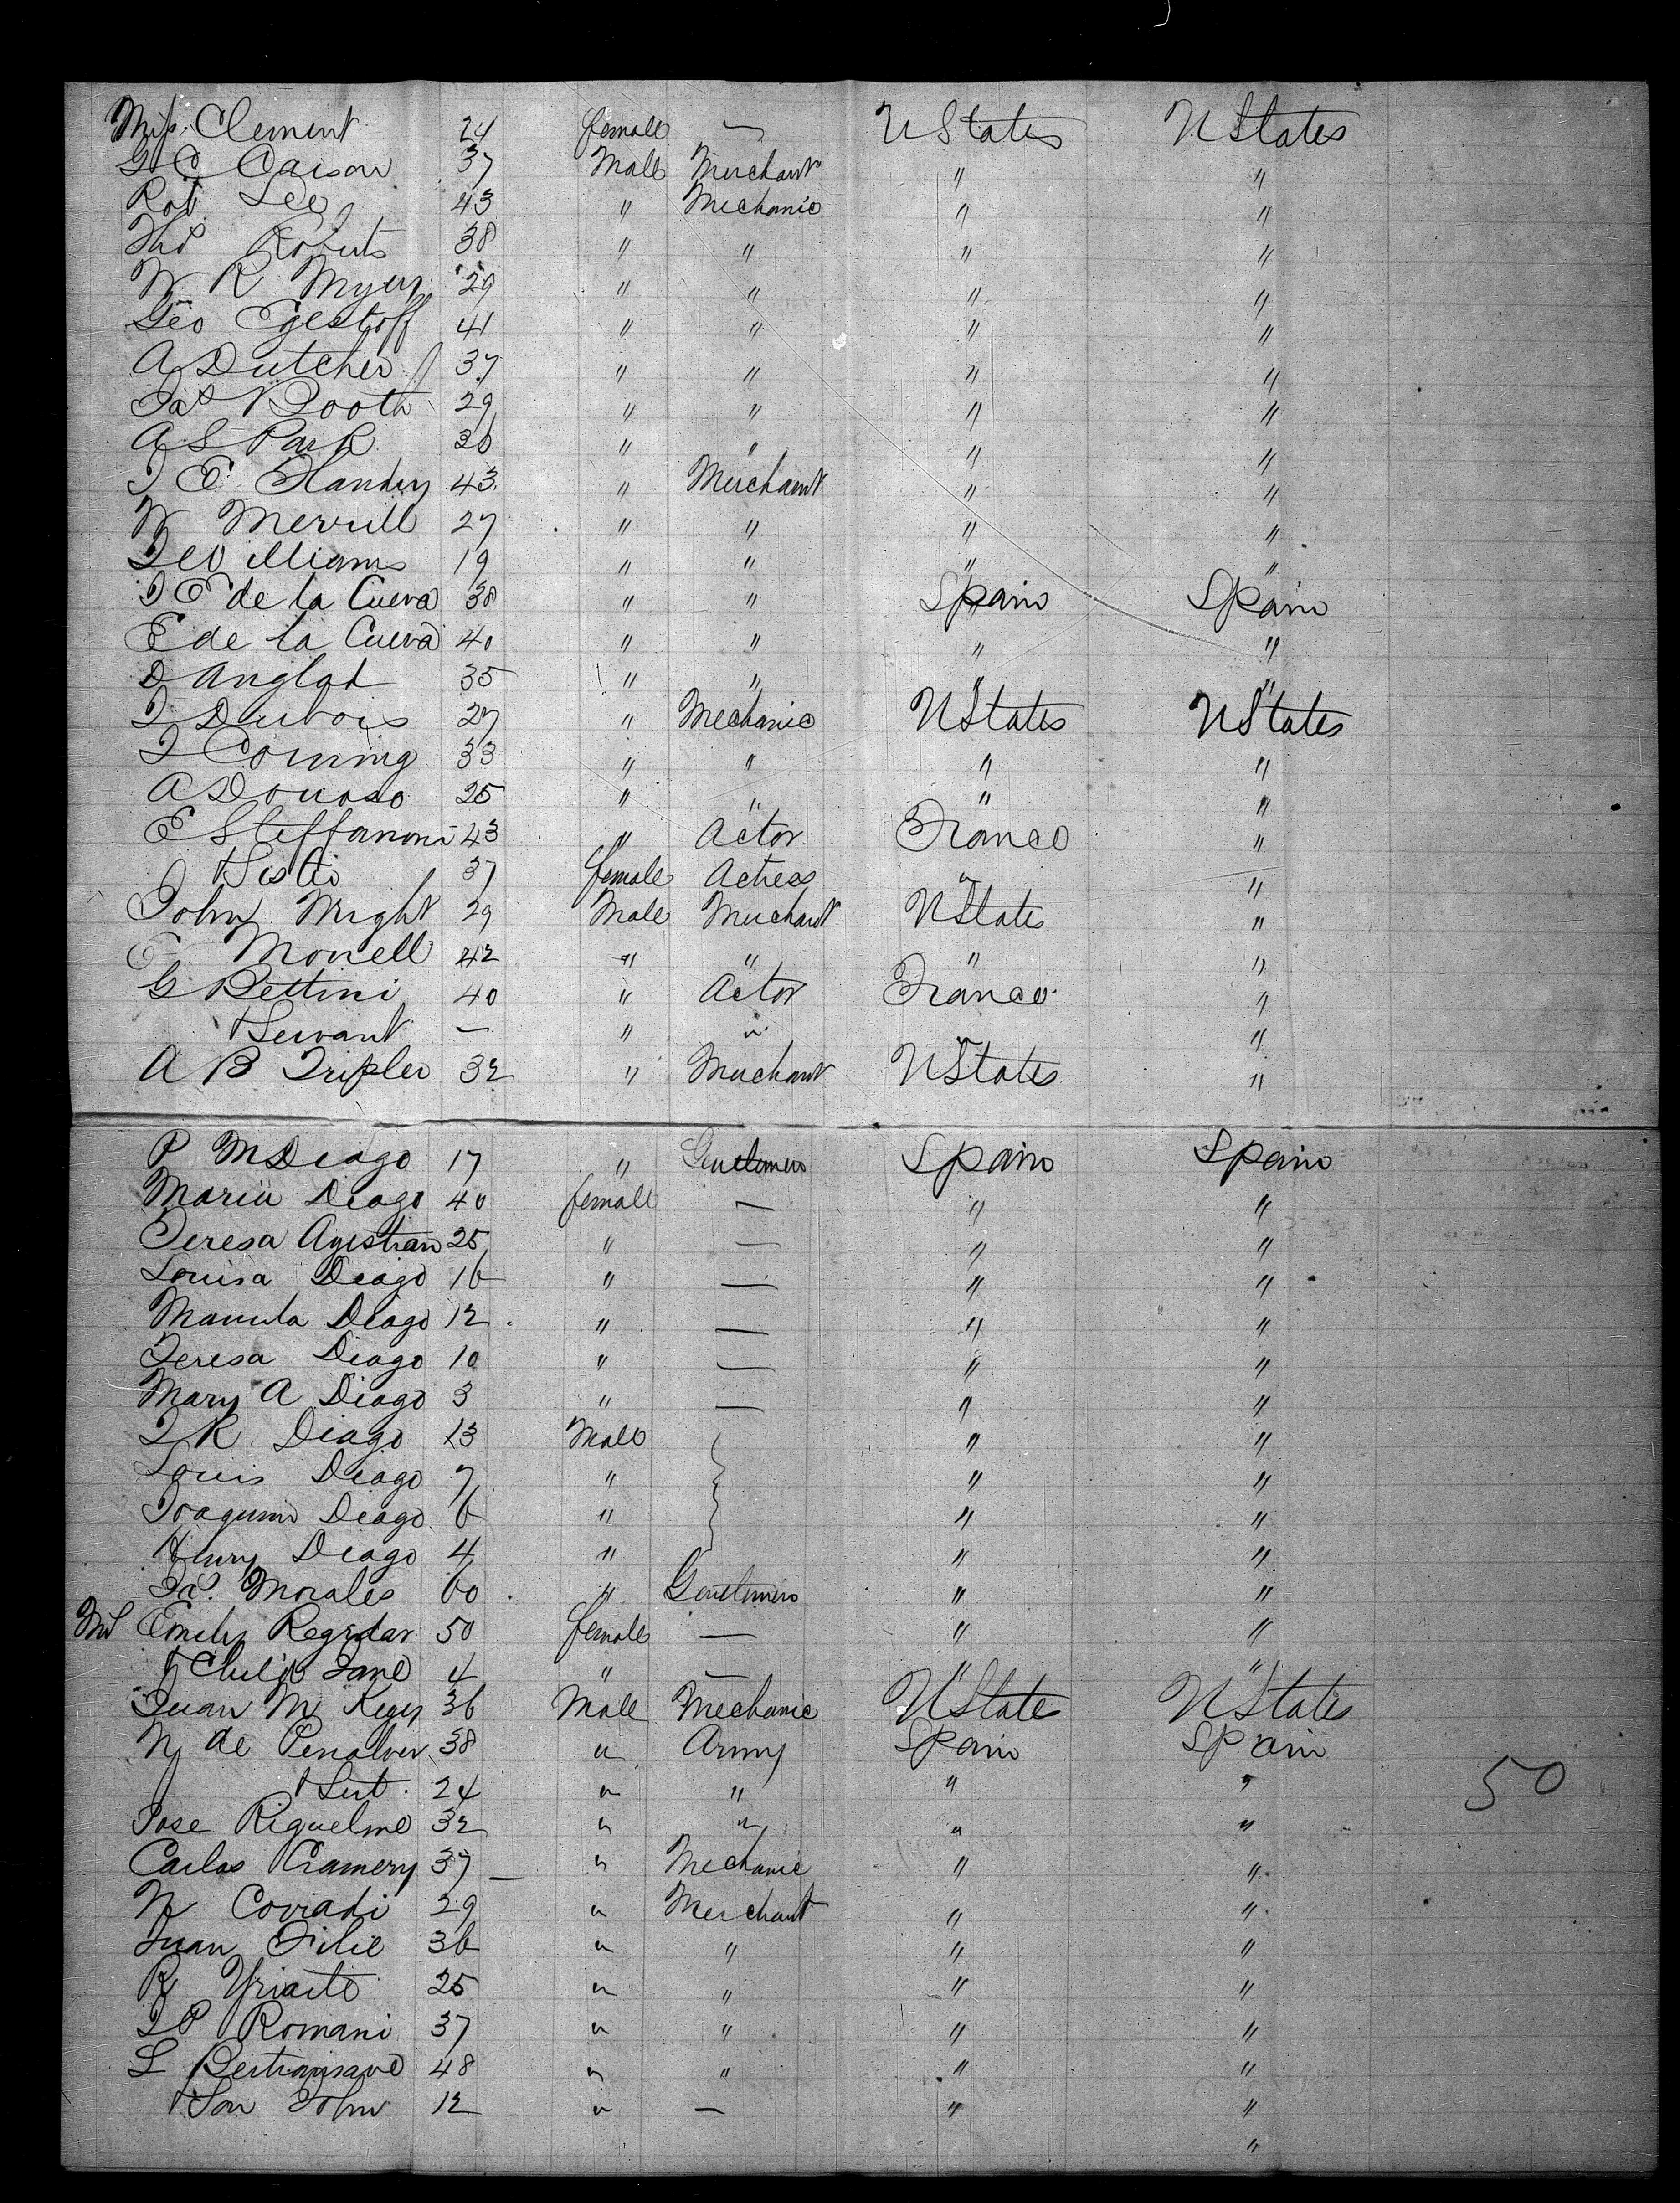 Miss Clement 24 female — U States U States
G C Carson 37 Male Merchant " "
Rob Lee 43 " Mechanic " "
Tho Roberts 38 " " " "
W R Myers 29 " " " "
Geo Egestoff 41 " " " "
A Dutcher 37 " " " "
Jas Booth 29 " " " "
A S Park 36 " " " "
J E 43 " Merchant " "
W Merrill 27 " " " "
J Williams 19 " " " "
J E de la Cueva 38 " " Spain Spain
E de la Cueva 40 " " " "
D Anglad 35 " " " "
J Dubois 27 " Mechanic U States U States
J Corning 33 " " " "
A Donoso 25 " " " "
E Steffanoni 43 " Actor France "
& Sister 37 female Actress " "
John Wright 29 Male Merchant U States "
E Monell 42 " " " "
G Bettini 40 " Actor France "
& Servant — " " " "
A B Tripler 32 " Merchant U States "
P M Diago 17 " Gentlemen Spain Spain
Maria Diago 40 female — " "
Teresa 25 " — " "
Louisa Diago 16 " — " "
Manuela Diago 12 " — " "
Teresa Diago 10 " — " "
Mary A Diago 3 " — " "
J R Diago 13 Male " "
Louis Diago 7 " " "
Joaquim Diago 6 " " "
Henry Diago 4 " " "
Jas. Morales 60 " Gentlemen " "
Mrs Emily 50 female — " "
& Child Jane 4 " — " "
Juan M Reyes 36 Male Mechanic U State U States
N de Penalver 38 " Army Spain Spain
& Sert. 24 " " " "
Jose Riquelme 32 " " " "
Carlos 37 — " Mechanic " "
N Corradi 29 " Merchant " "
Juan 36 " " " "
R Yriarte 25 " " " "
J P Romani 37 " " " "
L 48 " " " "
& Son John 12 " — " "
"
50